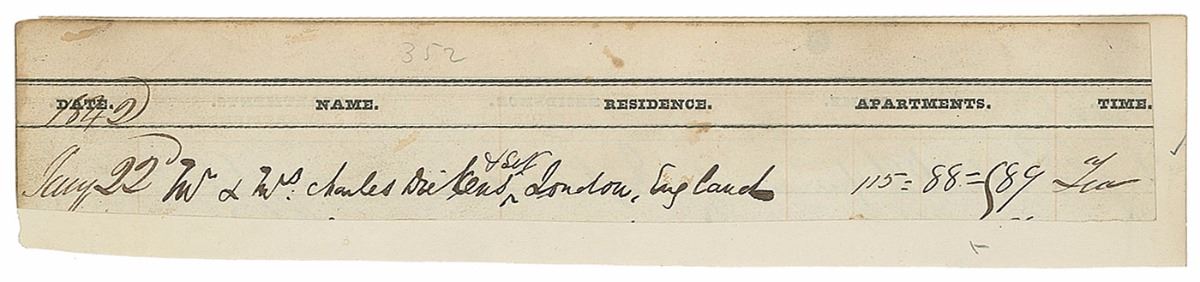 352
DATE. NAME. RESIDENCE. APARTMENTS. TIME.
1842
& Svt
Jany 22 Mr & Mrs. Charles Dickens ‸ London, England 115 = 88 = {89 Tea